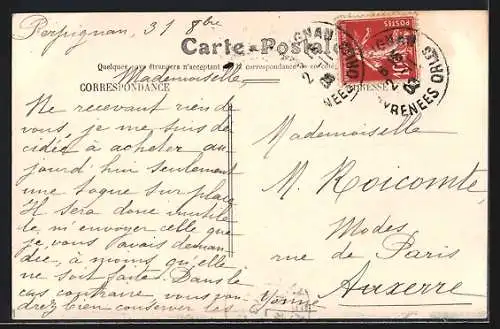 Perpignan, 31 8bre
Carte-Postale
Quelques pays étrangers n'acceptent pas la correspondance de ce côté
Mademoiselle,
CORRESPONDANCE
ADRESSE
POSTES
PERPIGNAN
PYRÉNÉES ORLES
Ne recevant rien de
vous, je me suis dé
cidée à acheter au
jourd'hui seulement
une toque sur place
Il sera donc inutile
de, m'envoyer celle que
je vous avais deman
dée, à moins qu'elle
ne soit faite. Dans le
cas contraire, vous vou
drez bien conserver les
Mademoiselle
M. Roicomte
Modes
rue de Paris
Auxerre
Yonne